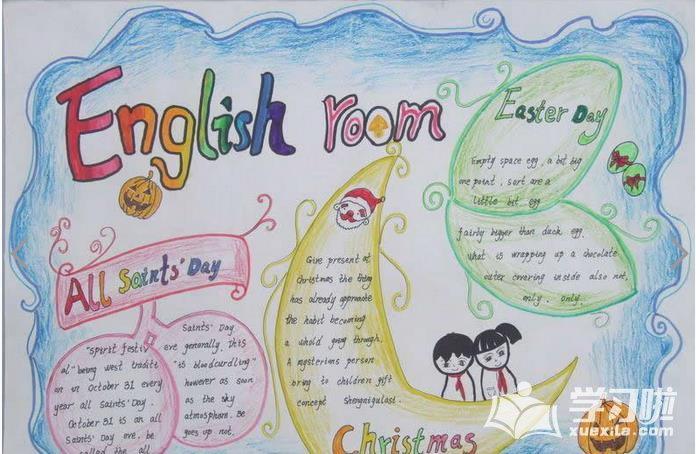 English room
Easter Day
Empty space egg, a bit big
one point, sort are a
little bit egg
fairly bigger than duck egg,
what is wrapping up a chocolate
outer covering inside also not,
only, only.
All Saints' Day
"Spirit festiv
al" being west traditi
on in October 31 every
year all Saints' Day.
October 31 is an all
Saints' Day eve, be
called the all
Saints' Day
eve generally, this
"is bloodcurdling"
however as soon
as the sky
atmosphere. Be
goes up not,
Give present at
Christmas the thing
has already approache
the habit becoming
a whold going through,
A mysterious person
bring to children gift
concept Shengniqulast.
Christmas
学习啦
xuexila.com